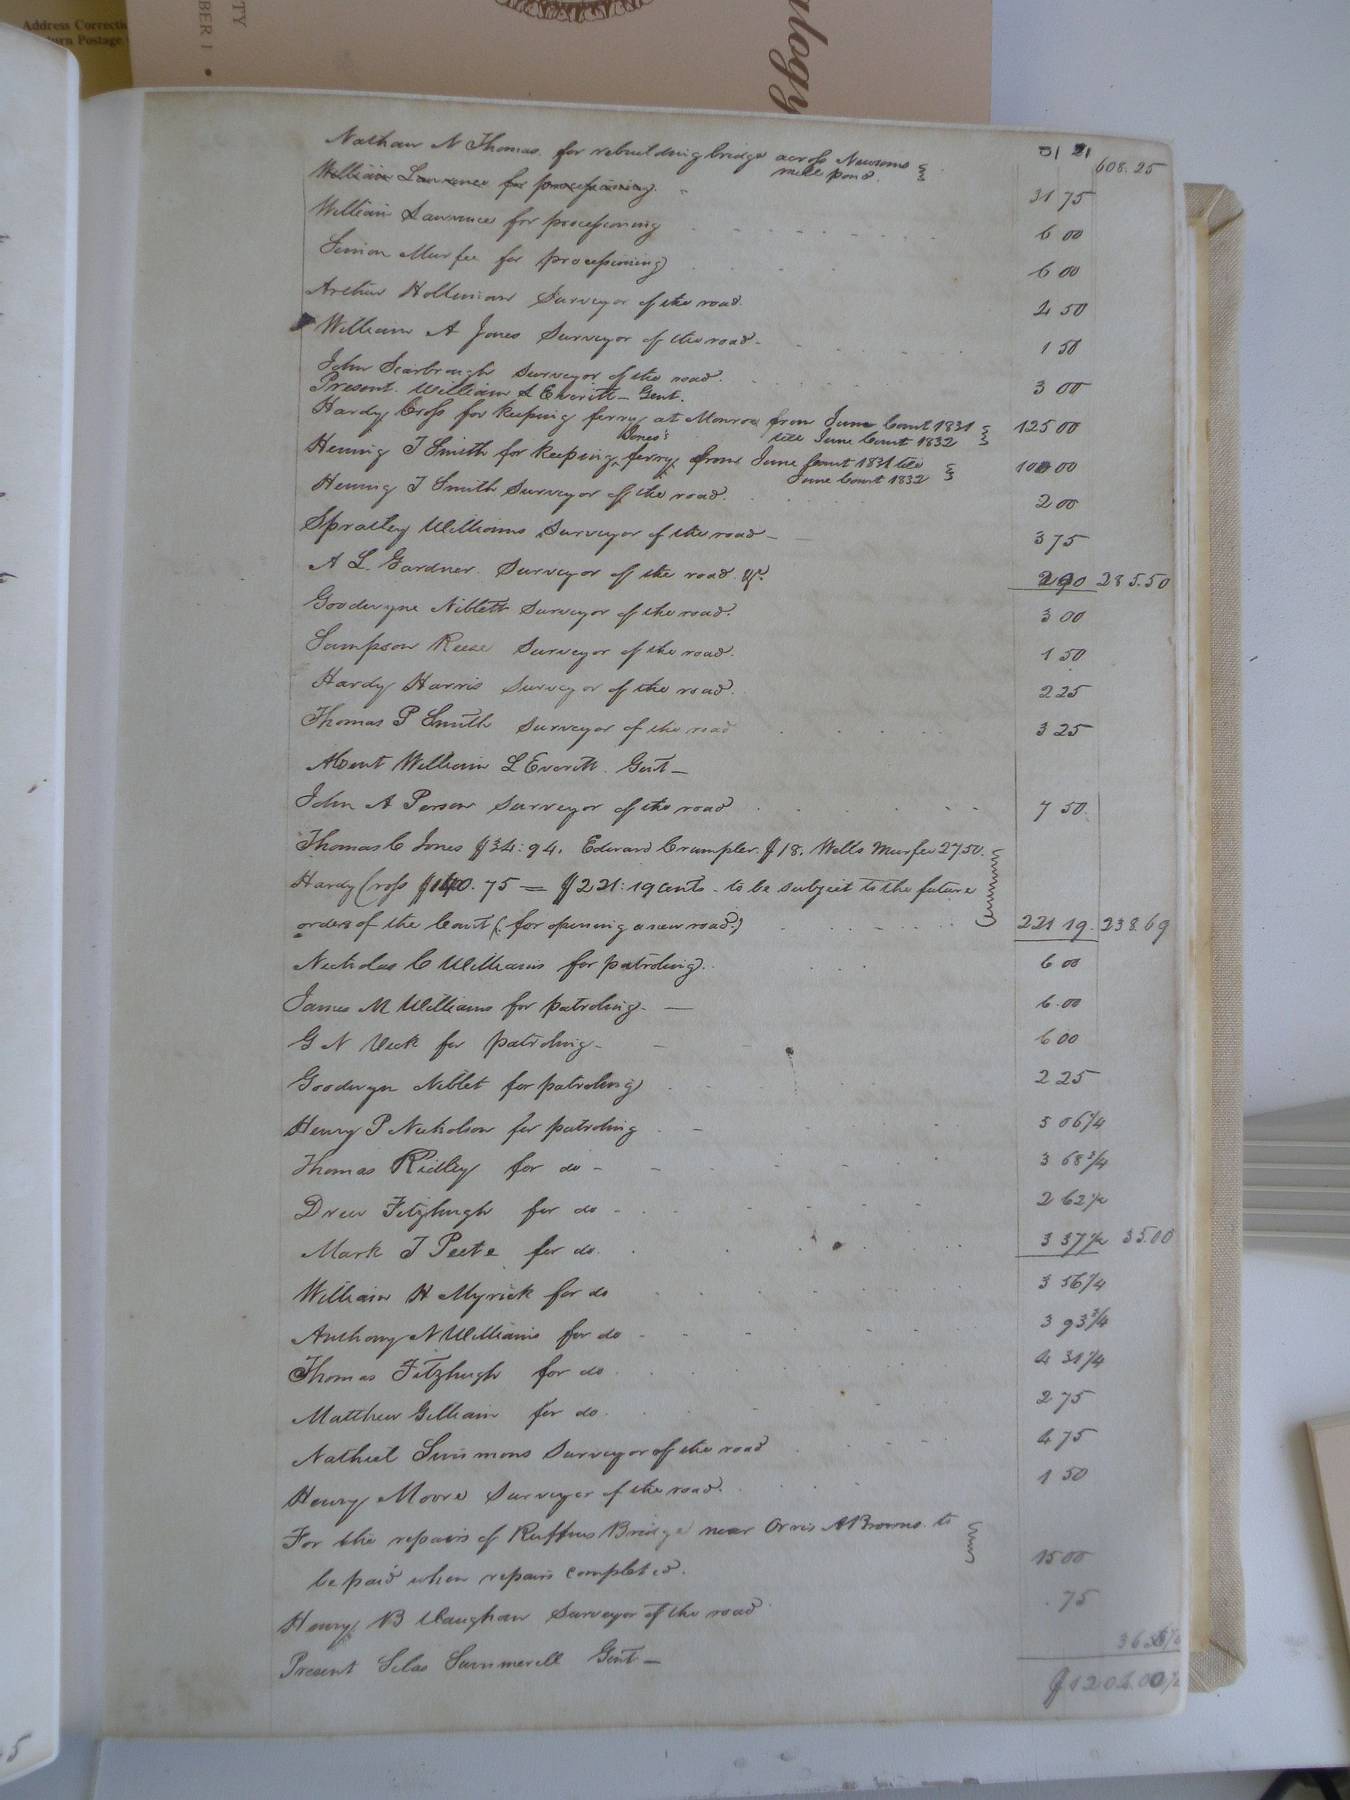 Address Correcti
urn Postage
TY
BER 1 •
ology
608.25
Nathan N Thomas. for rebuilding bridge across Newsoms
mill pond. 31 75
William Lawrence for processioning.
William Lawrence for processioning 6 00
Simon Murfee for processioning 6 00
Arthur Holleman Surveyor of the road. 4 50
William A Jones Surveyor of the road - 1 50
John Scarbrough Surveyor of the road. 3 00
Present. William L Everitt - Gent.
Hardy Cross for keeping ferry at Monroe from June Court 1831
till June Court 1832 125 00
Jones's
Hening T Smith for keeping ferry from June Court 1831 till
June Court 1832 100 00
Hening T Smith Surveyor of the road. 2 00
Spratley Williams Surveyor of the road - 3 75
A L. Gardner. Surveyor of the road &c. 285.50
Goodwyne Niblett Surveyor of the road. 3 00
Sampson Reese Surveyor of the road. 1 50
Hardy Harris Surveyor of the road. 2 25
Thomas P Smith Surveyor of the road 3 25
Absent William L Everitt. Gent -
John A Person Surveyor of the road 7 50
Thomas C Jones $34:94. Edward Crumpler. $18. Wells Murfee 27.50.
Hardy Cross $140.75 = $221:19 cents - to be subject to the future
orders of the Court (for opening a new road.) 221 19. 238.69
Nicholas C Williams for patroling. 6 00
James M Williams for patroling. — 6.00
G N Vick for patroling - 6 00
Goodwyn Niblet for patroling 2 25
Henry P Nicholson for patroling 5 06 1/4
Thomas Ridley for do - 3 68 3/4
Drew Fitzhugh for do - 2 62 1/2
Mark T Peete for do. 3 37 1/2 35.00
William H Myrick for do 3 56 1/4
Anthony N Williams for do - 3 93 3/4
Thomas Fitzhugh for do 4 31 1/4
Matthew Gilliam for do. 2 75
Nathiel Simmons Surveyor of the road 4 75
Henry Moore Surveyor of the road. 1 50
For the repairs of Ruffins Bridge near Orris A Browns. to
be paid when repairs completed. 15 00
Henry B Vaughan Surveyor of the road 75
Present Silas Summerell Gent -
$1204.00 1/4
5